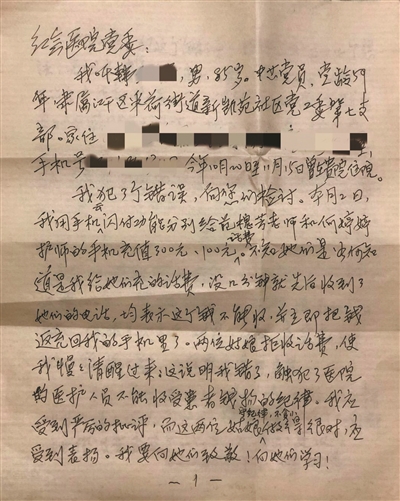 红会医院党委:
我叫韩 ,男,85岁。中共党员,党龄59
年,隶属江干区采荷街道新凯苑社区党工委第七支
部。家住
手机号 今年10月20日至11月15日曾在贵院住院。
我犯了个错误,向您们检讨。本月2日,
我用手机闪付功能分别给 老师和何婷婷
护师的手机充值300元、100元话费。不知她们是如何知
道是我给她们充的话费,没几分钟就先后收到了
她们的电话,均表示这个钱不能收,并立即把钱
返充回我的手机里了。两位好姑娘拒收话费,使
我 清醒过来:这说明我错了,触犯了医院
的医护人员不能收受患者钱物的纪律。我应
受到严厉的批评,而这两位好姑娘 做得很对,应
受到表扬。我要向她们致敬!向她们学习!
— 1 —